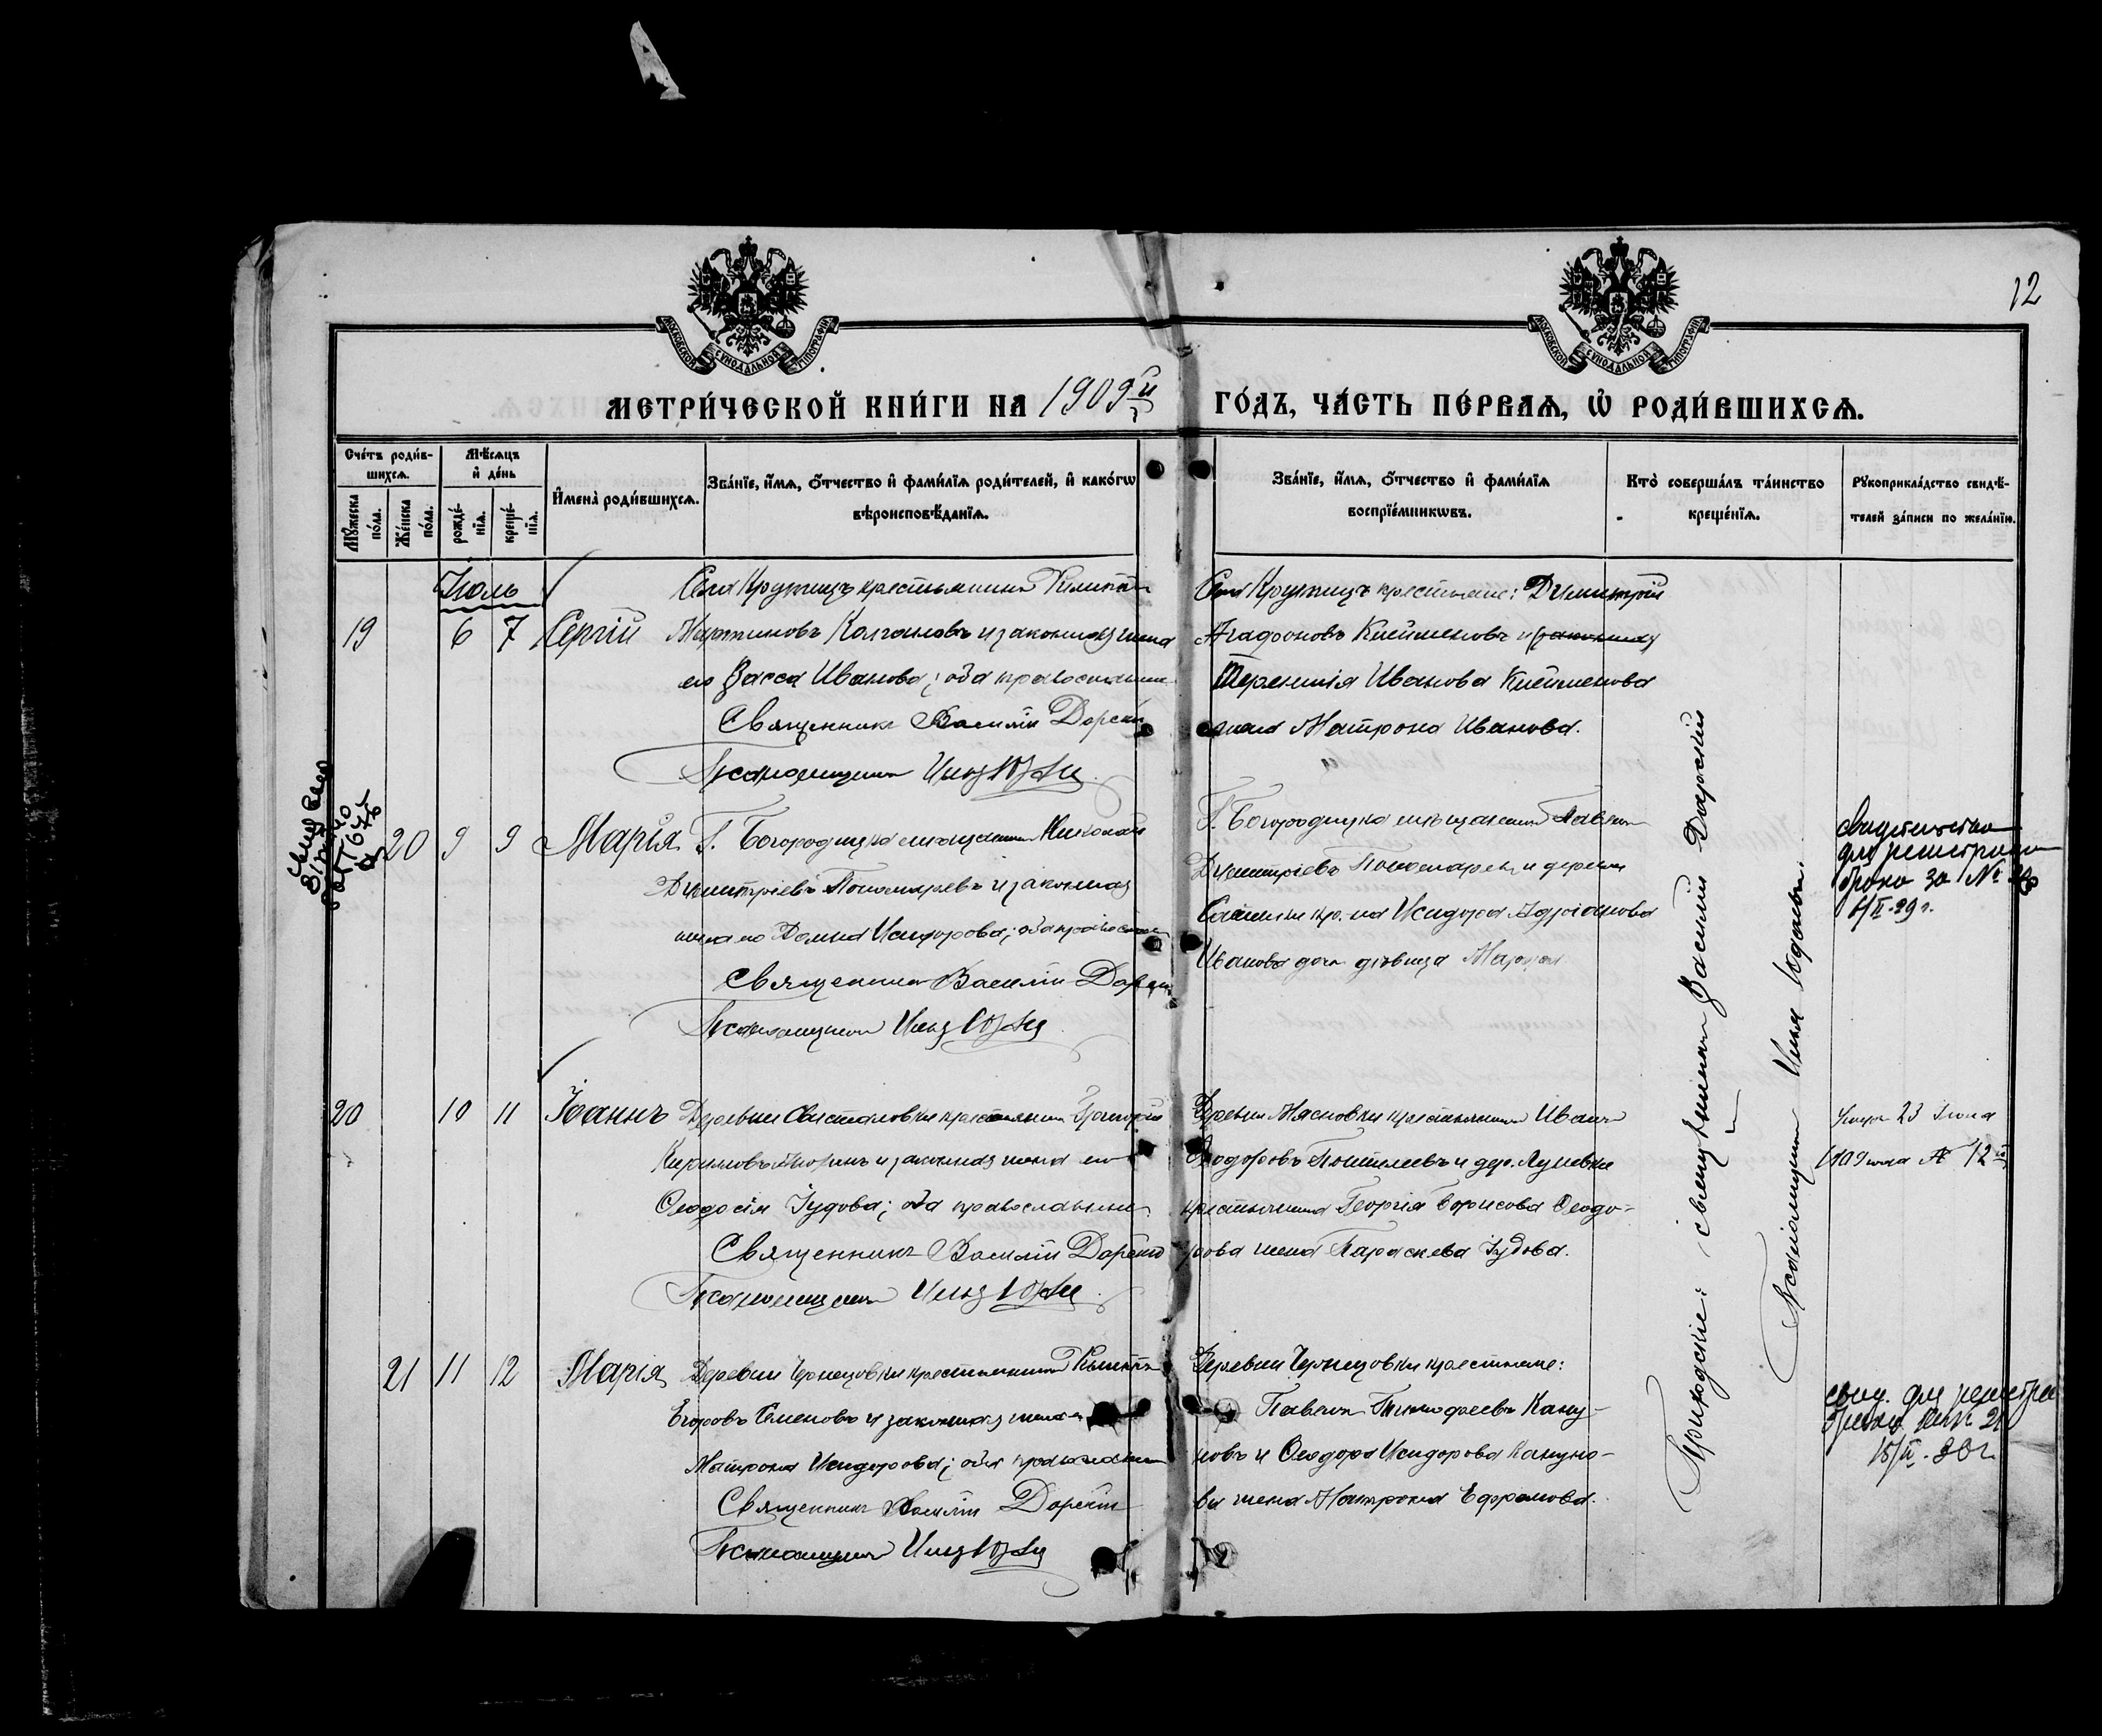 12
МОСКОВСКОЙ СУНОДАЛЬНОЙ ТИПОГРАФІИ
МОСКОВСКОЙ СУНОДАЛЬНОЙ ТИПОГРАФІИ
МЕТРИ́ЧЕСКОЙ КНИ́ГИ НА 1909й ГО́ДЪ, ЧА́СТЬ ПЕ́РВАѦ, Ѡ҆ РОДИ́ВШИХСѦ.
Сче́тъ роди́в-
шихсѧ.
Мꙋ́жеска по́ла.
Же́нска по́ла.
Мѣ́сѧцъ
и҆ де́нь
рожде́-
нїѧ.
креще́-
нїѧ.
И҆мена̀ роди́вшихсѧ.
Зва́нїе, и҆́мѧ, ѻ҆́тчество и҆ фами́лїѧ роди́телей, и҆ како́гѡ
вѣроисповѣ́данїѧ.
Зва́нїе, и҆́мѧ, ѻ҆́тчество и҆ фами́лїѧ
воспрїе́мникѡвъ.
Кто̀ соверша́лъ та́инство
креще́нїѧ.
Рꙋкоприкла́дство свидѣ́-
телей за́писи по жела́нїю.
Іюль
19 6 7 Сергій
Села Кружицъ крестьянинъ
Мартиновъ и законная жена
его Васса Ивановa; оба православные
Священникъ Василій Дарскій
Псаломщикъ Илья
Села Кружицъ крестьяне: Димитрій
Агафоновъ Клейменовъ и
Терентія Иванова Клейменова
жена Матрона Иванова.
20 9 9 Марія
Г. Богородицка мѣщанинъ Николай
Димитріевъ Пономаревъ и законная
жена его Домна Исидорова; оба православные
Священникъ Василій Дарскій
Псаломщикъ Илья
Г. Богородицка мѣщанинъ Павелъ
Димитріевъ Пономаревъ и деревни
кр-на Исидора Адріанова
Иванова дочь дѣвица
свидетельство
для регистрации
брака за №
/II-29 г.
20 10 11 Іоаннъ
Деревни крестьянинъ Григорій
и законная жена его
Ѳеодосія Іудова; оба православные
Священникъ Василій Дарскій
Псаломщикъ Илья
Деревни крестьянинъ Иванъ
Ѳеодоровъ и дер.
крестьянина Георгія Борисова Ѳеодо-
рова жена Параскева Іудова.
23
1909 года 12
21 11 12 Марія
Деревни Чернецовки крестьянинъ
Егоровъ Семеновъ и законная жена
Матрона Исидорова; оба православные
Священникъ Василій Дарскій
Псаломщикъ Илья
Деревни Чернецовки крестьяне:
Павелъ Тимофеевъ Кану-
новъ и Ѳеодора Исидорова Кануно-
ва жена Матрона Ефремова.
свид. для регистрац
Приходскіе: священникъ Василій Дарскій
Псаломщикъ Илья